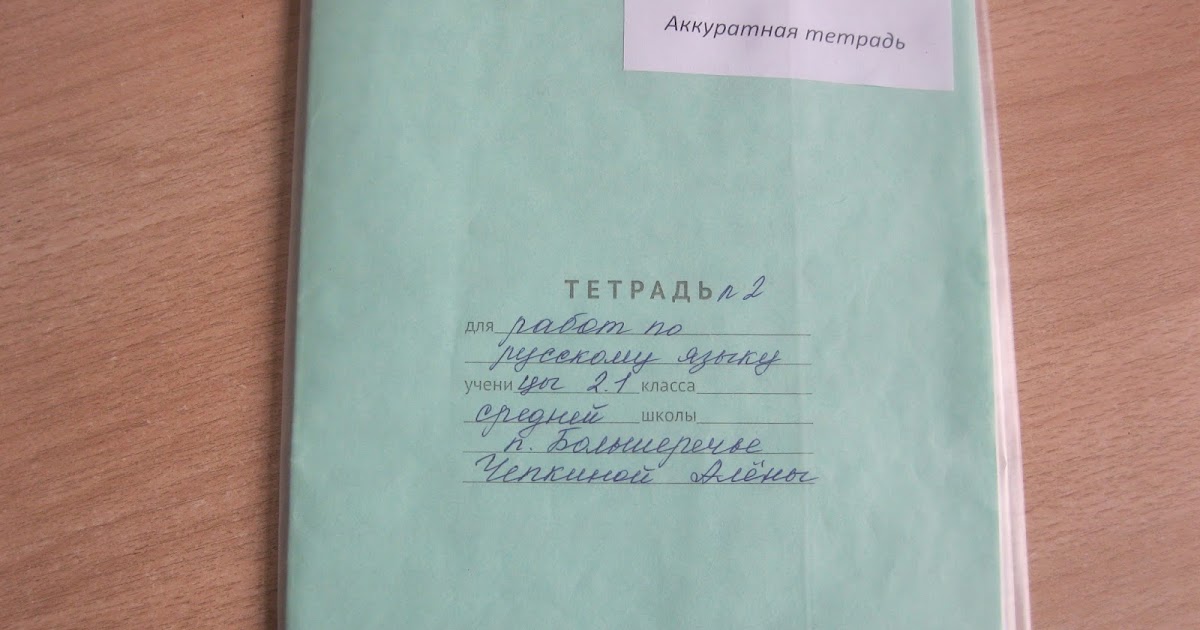 Аккуратная тетрадь
ТЕТРАДЬ № 2
для работ по
русскому языку
учени цы 2.1 класса
средней школы
п. Большеречье
Чепкиной Алёны